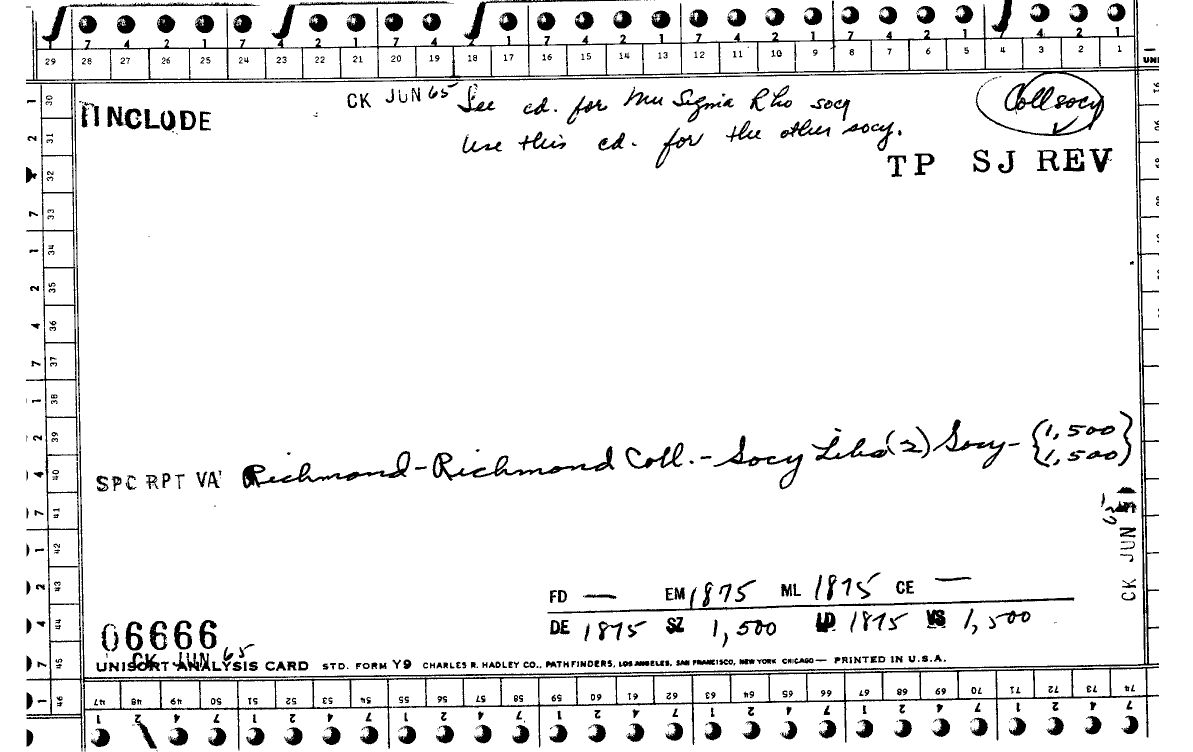 7 4 2 1 7 4 2 1 7 4 2 1 7 4 2 1 7 4 2 1 7 4 2 1 7 4 2 1
29 28 27 26 25 24 23 22 21 20 19 18 17 16 15 14 13 12 11 10 9 8 7 6 5 4 3 2 1
INCLUDE
CK JUN 65 See cd. for Mu Sigma Rho socy
Coll socy
Use this cd. for the other socy.
TP SJ REV
SPC RPT VA Richmond-Richmond Coll.- Socy Libs (2) Socy- {1,500}
{1,500}
CK JUN
FD — EM 1875 ML 1875 CE —
DE 1875 SZ 1,500 LD 1875 VS 1,500
06666
CK JUN 65
UNISORT ANALYSIS CARD STD. FORM Y9 CHARLES R. HADLEY CO., PATHFINDERS, LOS ANGELES, SAN FRANCISCO, NEW YORK CHICAGO — PRINTED IN U.S.A.
30 31 32 33 34 35 36 37 38 39 40 41 42 43 44 45 46
47 48 49 50 51 52 53 54 55 56 57 58 59 60 61 62 63 64 65 66 67 68 69 70 71 72 73 74